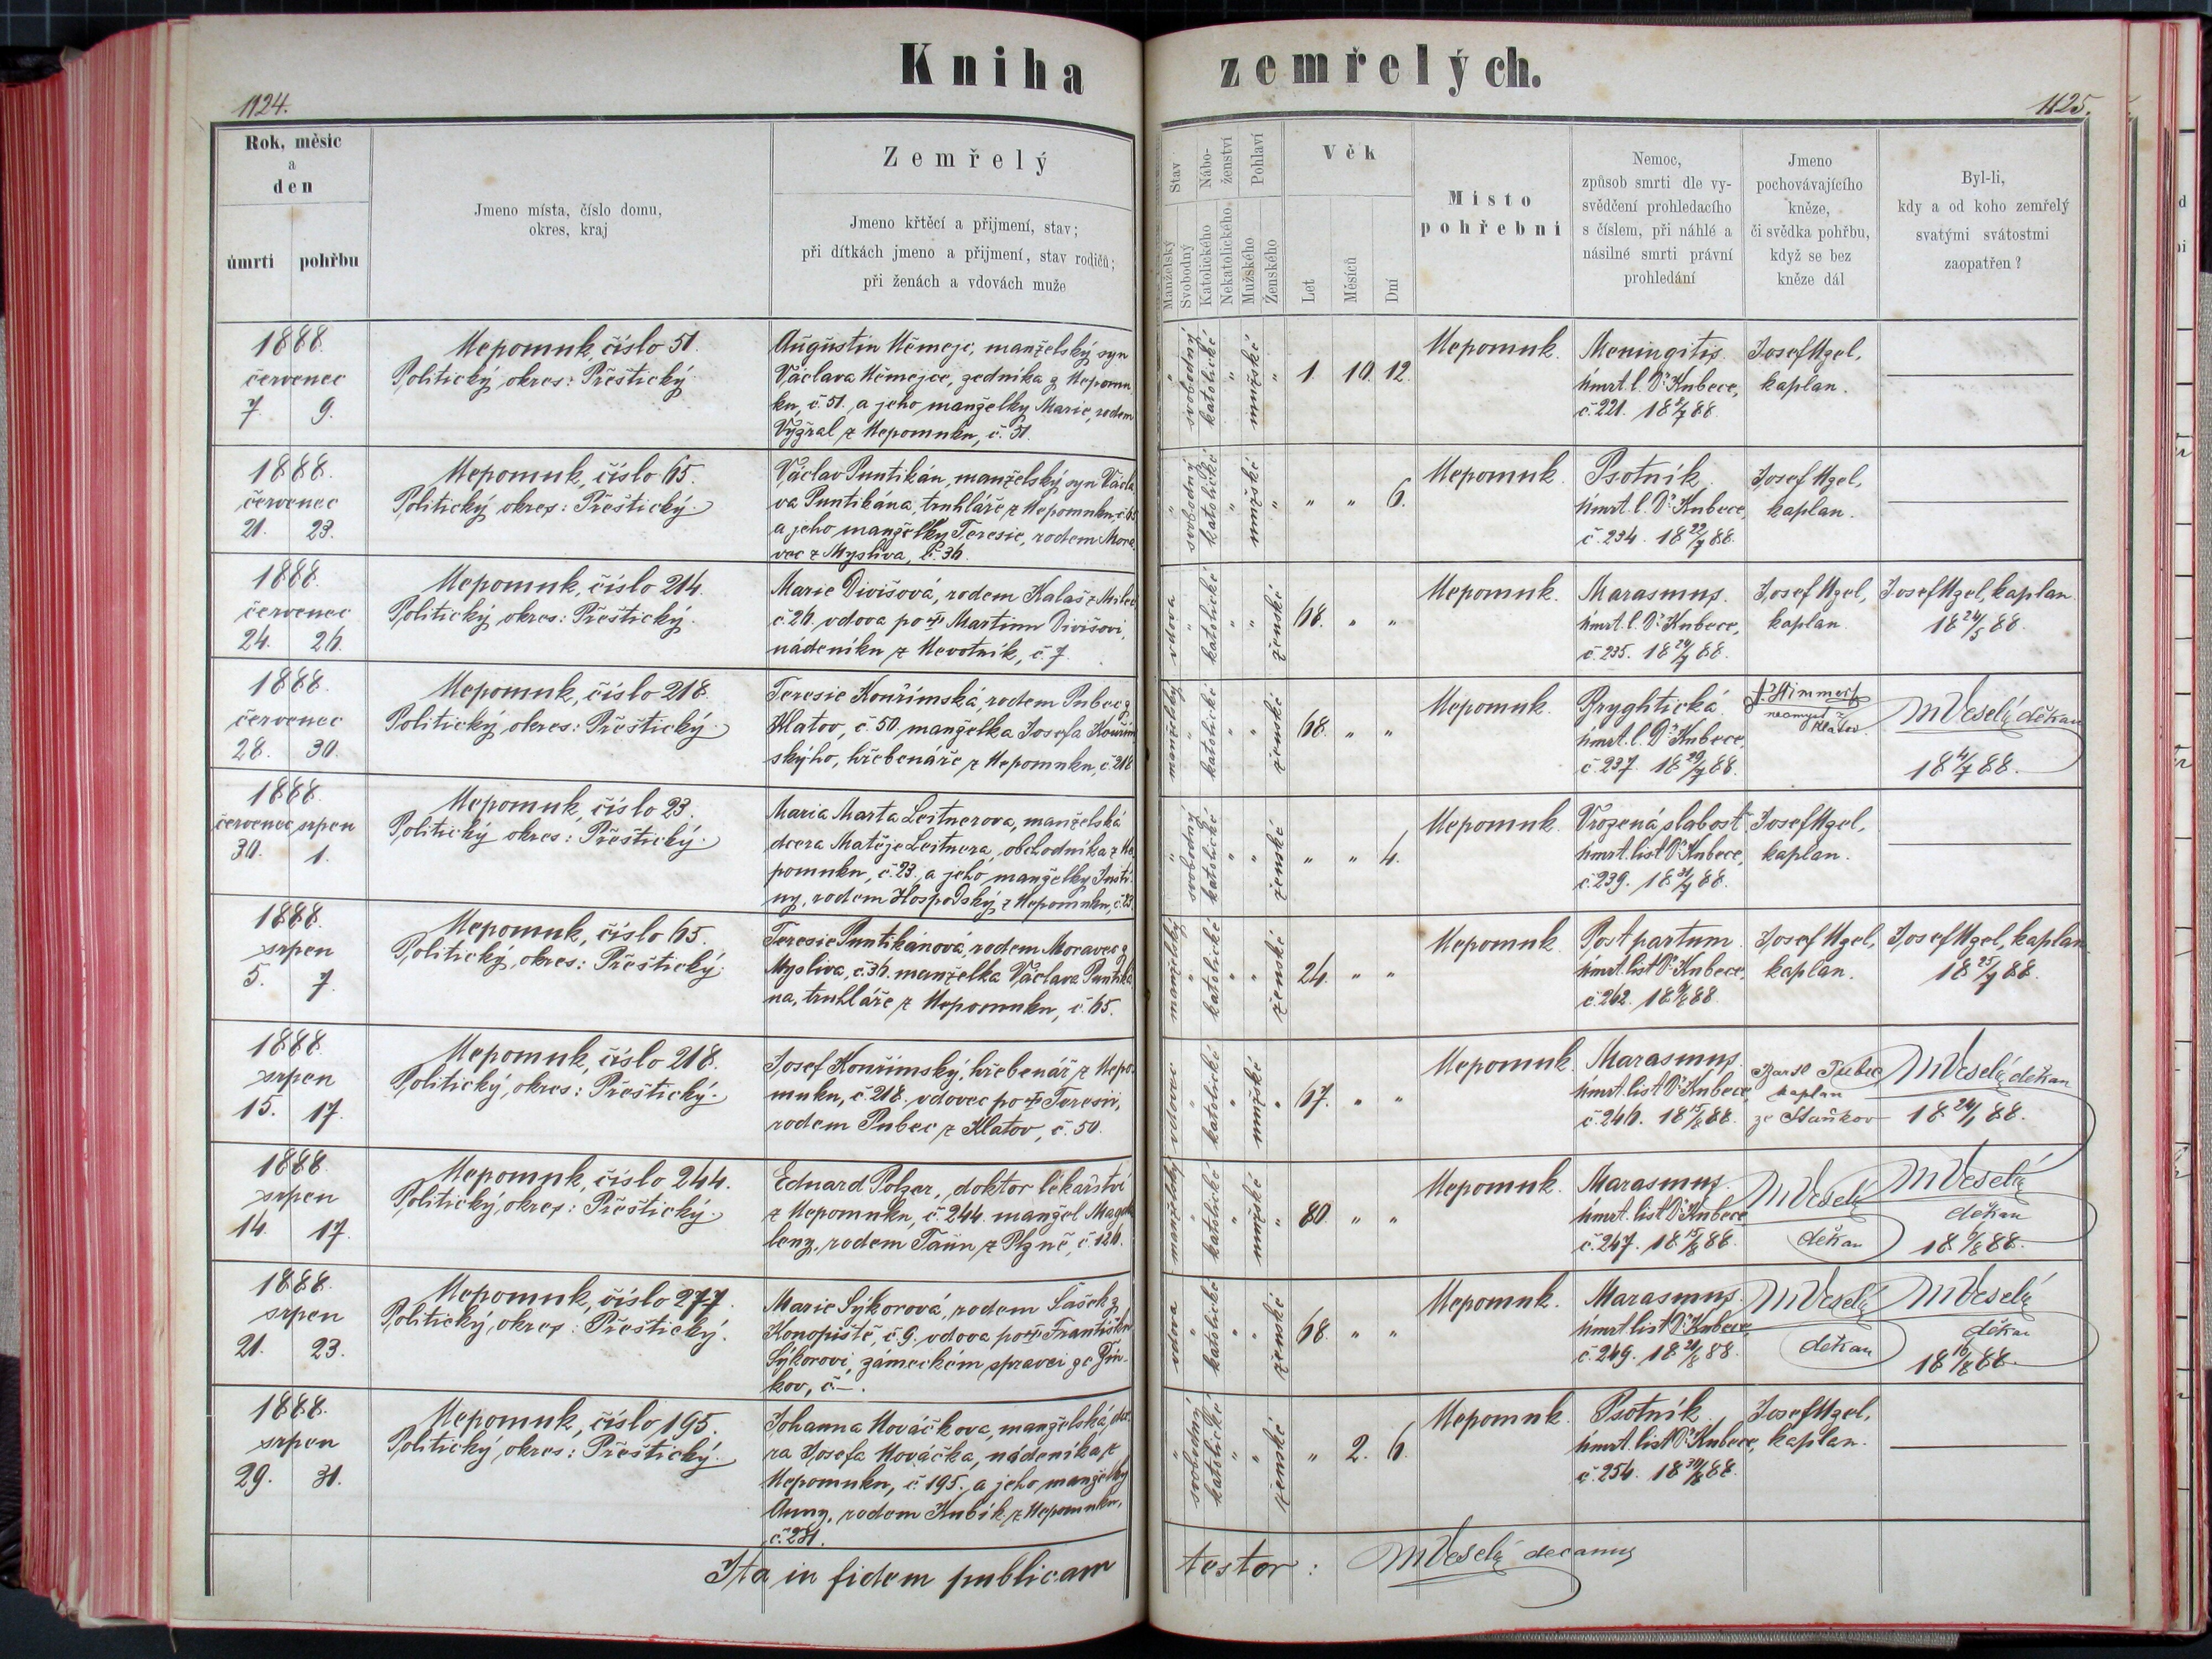 Kniha zemřelých.
1124.
1125.
Rok, měsíc
a
den
úmrtí
pohřbu
Jmeno místa, číslo domu,
okres, kraj
Zemřelý
Jmeno křtěcí a přijmení, stav;
při dítkách jmeno a přijmení, stav rodičů;
při ženách a vdovách muže
Stav
Manželský
Svobodný
Nábo-
ženství
Katolického
Nekatolického
Pohlaví
Mužského
Ženského
Věk
Let
Měsíců
Dní
Místo
pohřební
Nemoc,
způsob smrti dle vy-
svědčení prohledacího
s číslem, při náhlé a
násilné smrti právní
prohledání
Jmeno
pochovávajícího
kněze,
či svědka pohřbu,
když se bez
kněze dál
Byl-li,
kdy a od koho zemřelý
svatými svátostmi
zaopatřen?
1888.
červenec
7. 9.
Nepomuk, číslo 51.
Politický okres: Přeštický
Augustin Němejc, manželský syn
Václava Němejce, zedníka z Nepomu
ku, č. 51. a jeho manželky Marie, rodem
Vyžral z Nepomuku, č. 51.
" svobodný katolické " mužské " 1. 10. 12.
Nepomuk.
Meningitis.
úmrt. l. Dr Kubece,
č. 221. 18 8/7 88.
Josef Uzel,
kaplan.
1888.
červenec
21. 23.
Nepomuk, číslo 65.
Politický okres: Přeštický
Václav Puntikán, manželský syn Václa
va Puntikána, truhláře z Nepomuku č. 65
a jeho manželky Teresie, rodem Mora
vec z Mysliva, č. 36.
" svobodný katolické " mužské " " " 6.
Nepomuk.
Psotník
úmrt. l. Dr Kubece,
č. 234. 18 22/7 88.
Josef Uzel,
kaplan.
1888.
červenec
24. 26.
Nepomuk, číslo 214.
Politický okres: Přeštický
Marie Divišová, rodem Kalaš z Mileč
č. 26. vdova po † Martinu Divišovi,
nádeníku z Nevotník, č. 7.
vdova " katolické " " ženské 68. " "
Nepomuk.
Marasmus.
úmrt. l. Dr Kubece,
č. 235. 18 24/7 88.
Josef Uzel,
kaplan.
Josef Uzel, kaplan.
18 24/5 88.
1888.
červenec
28. 30.
Nepomuk, číslo 218.
Politický okres: Přeštický
Teresie Kouřimská, rodem Pubec z
Klatov, č. 50. manželka Josefa Kouřim
ského, hřebenáře z Nepomuku, č. 218
manželský " katolické " " ženské 68. " "
Nepomuk.
Bryghtická
úmrt. l. Dr Kubece,
č. 237. 18 29/7 88.
z Klatov.
M Veselý děkan
18 4/7 88.
1888.
červenec srpen
30. 1.
Nepomuk, číslo 23.
Politický okres: Přeštický
Maria Marta Leitnerova, manželská
dcera Matěje Leitnera, obchodníka z Ne
pomuku, č. 23. a jeho manželky Justi
ny, rodem Hospodský z Nepomuku, č. 23
" svobodný katolické " " ženské " " 4.
Nepomuk.
Vrozená slabosť
úmrt. list Dr Kubece,
č. 239. 18 31/7 88.
Josef Uzel,
kaplan.
1888.
srpen
5. 7.
Nepomuk, číslo 65.
Politický okres: Přeštický
Teresie Puntikánová, rodem Moravec z
Mysliva, č. 36. manželka Václava Puntiká
na, truhláře z Nepomuku, č. 65.
manželský " katolické " " ženské 24. " "
Nepomuk.
Post partum.
úmrt. list Dr Kubece,
č. 242. 18 6/8 88.
Josef Uzel,
kaplan.
Josef Uzel, kaplan
18 25/7 88.
1888.
srpen
15. 17.
Nepomuk, číslo 218.
Politický okres: Přeštický
Josef Kouřimský, hřebenář z Nepo
muku, č. 218. vdovec po † Teresii,
rodem Pubec z Klatov, č. 50.
vdovec " katolické " mužské " 67. " "
Nepomuk.
Marasmus.
úmrt. list Dr Kubece
č. 246. 18 15/8 88.
Pubec
kaplan
ze Staňkov
M Veselý děkan
18 24/1 88.
1888.
srpen
14. 17.
Nepomuk, číslo 244.
Politický okres: Přeštický
Eduard Polzer, doktor lékařství
z Nepomuku, č. 244. manžel Magda
leny, rodem Taün z Plzně, č. 126.
manželský " katolické " mužské " 80. " "
Nepomuk.
Marasmus.
úmrt. list Dr Kubece
č. 247. 18 15/8 88.
M Veselý
děkan
M Veselý
děkan
18 6/8 88.
1888.
srpen
21. 23.
Nepomuk, číslo 277.
Politický okres: Přeštický
Marie Sýkorová, rodem Šašek z
Konopiště, č. 9. vdova po † Františku
Sýkorovi, zámeckém spravci ze Žin-
kov, č. —.
vdova " katolické " " ženské 68. " "
Nepomuk.
Marasmus.
úmrt. list Dr Kubece,
č. 249. 18 21/8 88.
M Veselý
děkan
M Veselý
děkan
18 16/8 88.
1888.
srpen
29. 31.
Nepomuk, číslo 195.
Politický okres: Přeštický
Johanna Nováčkova, manželská dce
ra Josefa Nováčka, nádeníka z
Nepomuku, č. 195. a jeho manželky
Anny, rodem Kubík z Nepomuku,
č. 231.
" svobodný katolické " " ženské " 2. 6.
Nepomuk.
Psotník
úmrt. list Dr Kubece,
č. 254. 18 30/8 88.
Josef Uzel,
kaplan.
Ita in fidem publicam testor: M Veselý decanus